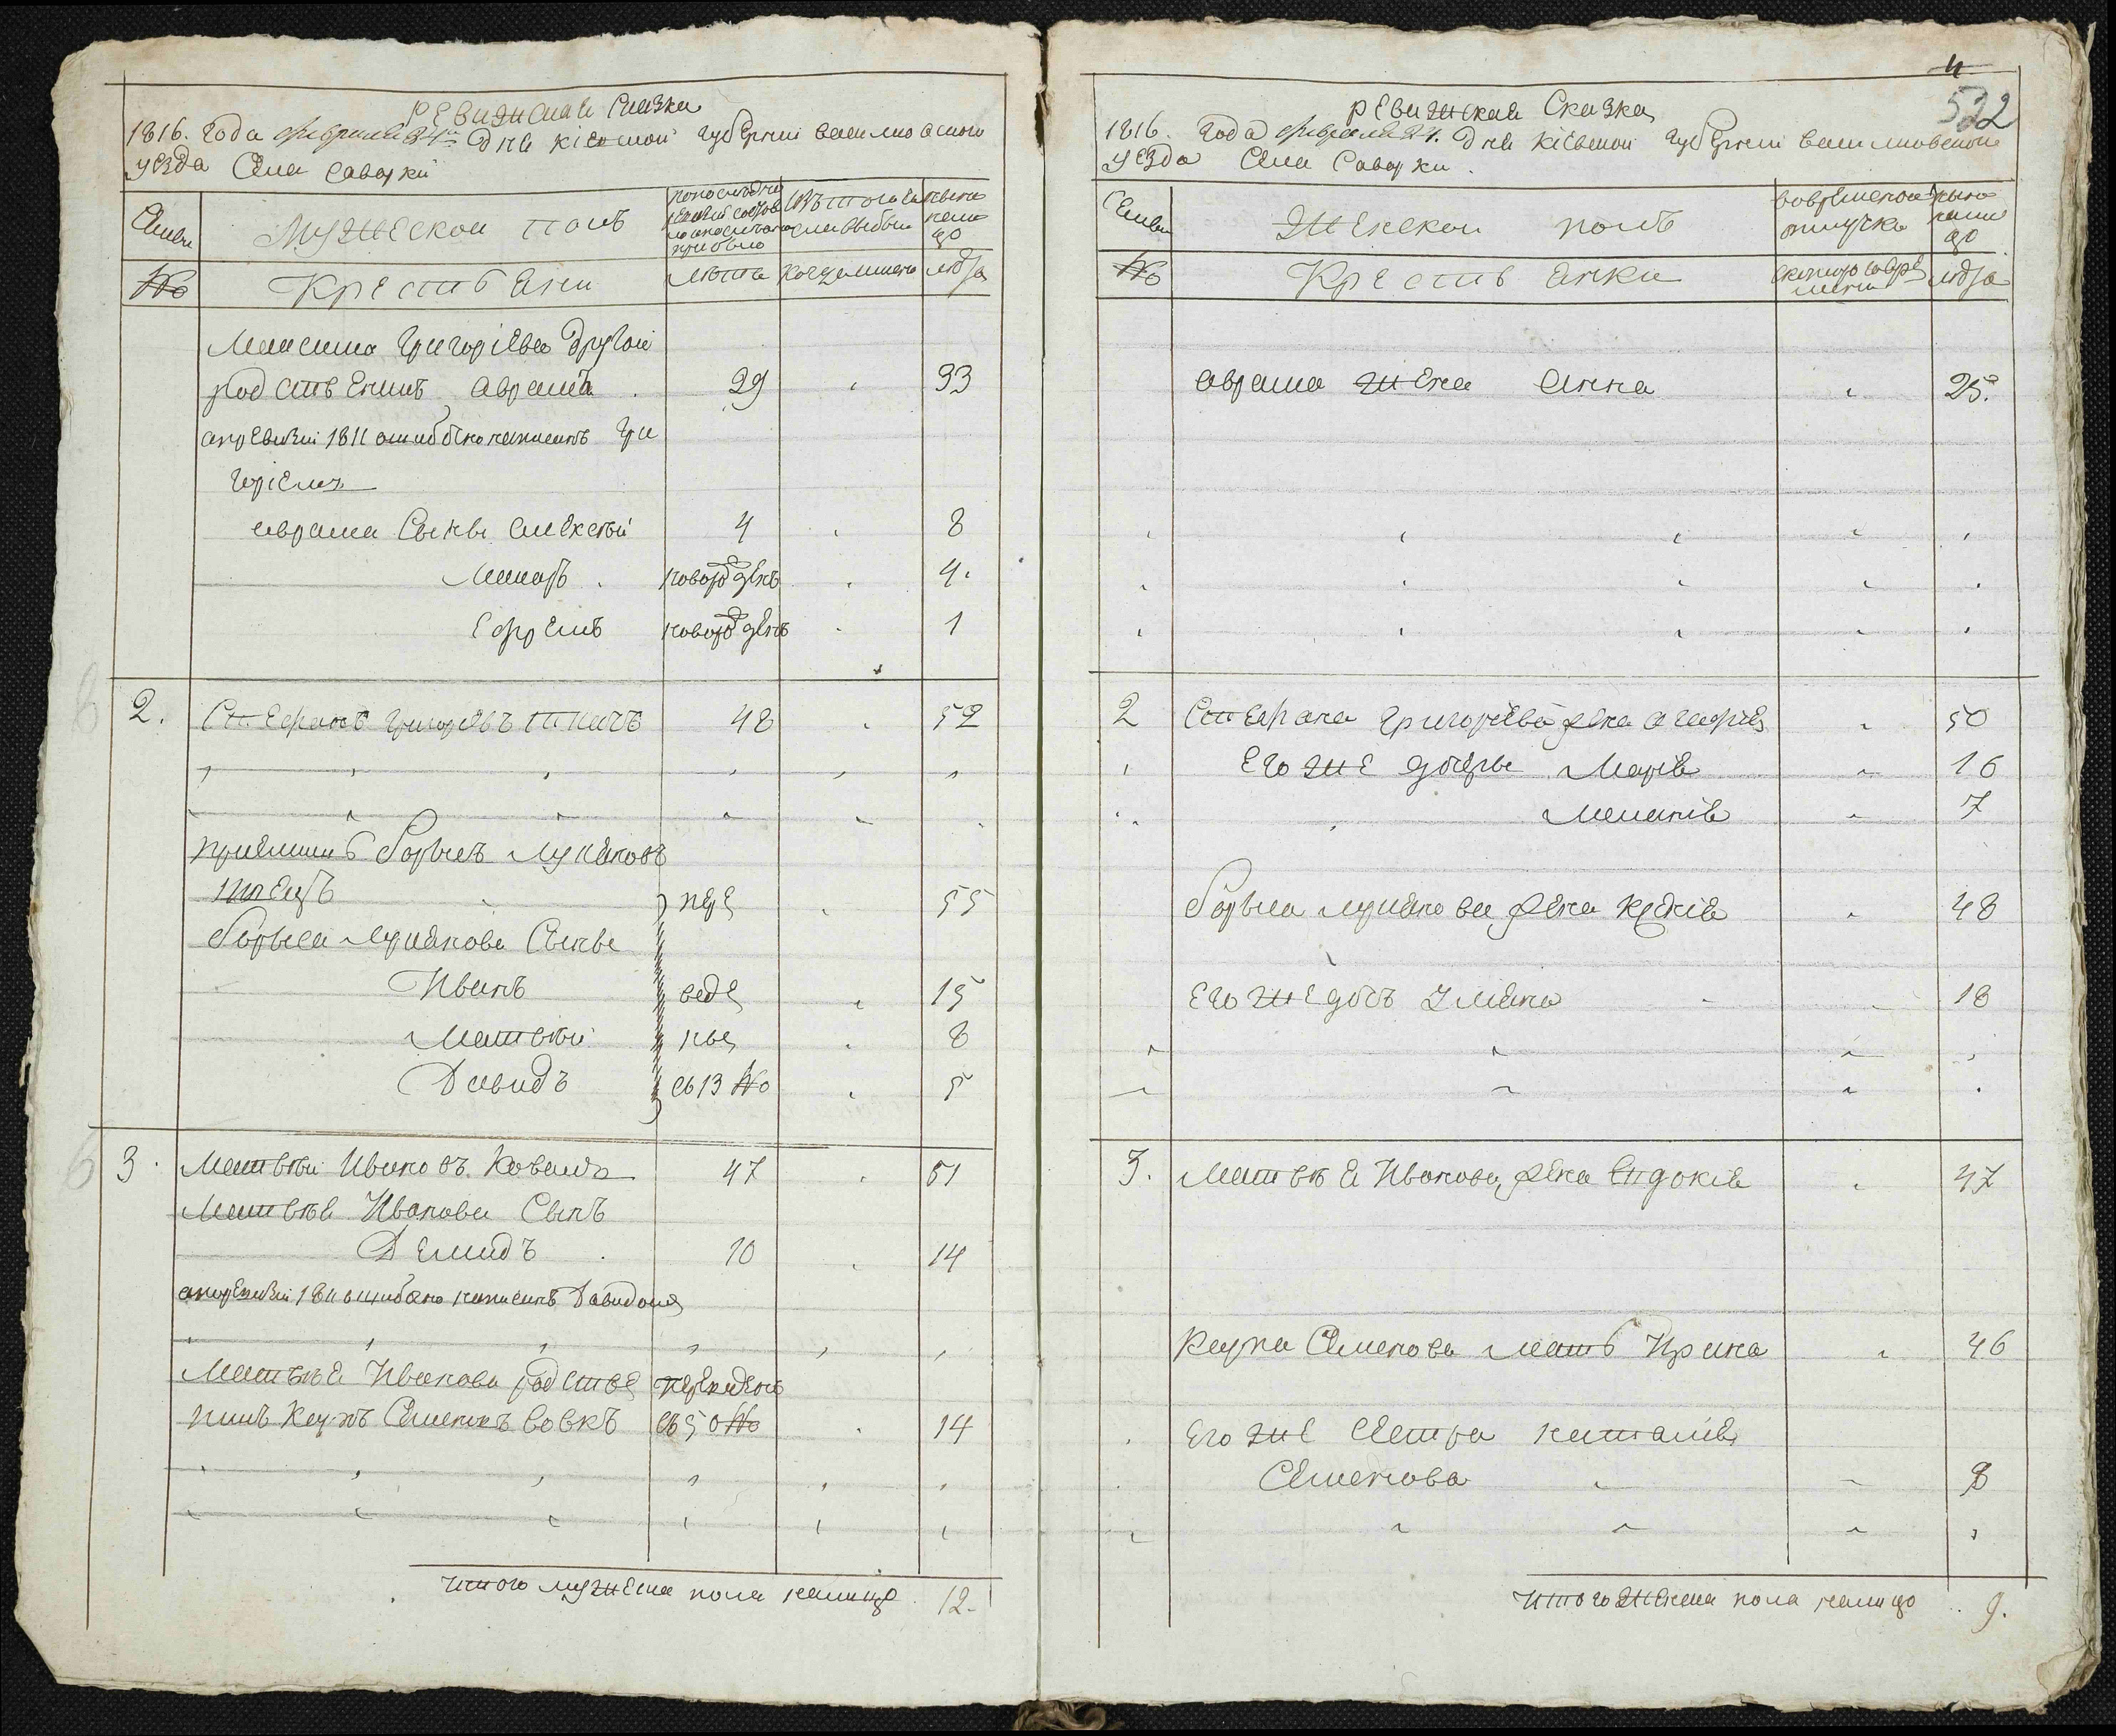 Ревижская Сказка
1816. Года февраля 24го Дня Кіевской Губерніи Василковскаго
уезда Села Саварки
Семьи
Мужеской полъ
ныне
на
ли
цо
№
Крестьяни
лѣта
лѣта
Максима Григоріева другой
родственикъ Аврамъ . 29 33
а по ревизіи 1811 ошибочно написанъ Гри
горіемъ
Аврама Сыны Алексѣй 4 8
Макаръ . новорожденъ 4.
Ефремъ новорожденъ 1
2. Стефанъ Григорьевъ ткачъ 48 52
пріемышъ Борысъ Лукяновъ
пере 55
Борыса Лукянова Сыны
Иванъ веде 15
Матвѣй ны 8
Давидъ съ 13 № 5
3. Матвѣй Ивановъ Коваль 47 51
Матвѣя Иванова Сынъ
Демидъ . 10 14
а по ревизіи 1811 ошибочно написанъ Давидомъ
Матвѣя Иванова родстве переведенъ
никъ Карпъ Семеновъ Вовкъ съ 50 № 14
Итого мужеска пола налицо 12.
4
532
Ревижская Сказка
1816. Года февраля 24. Дня Кіевской Губерніи Василковскаго
уезда Села Саварки.
Семьи
Женской полъ
во временной
отлучке
ныне
на
ли
цо
№
Крестьянки
лѣта
Аврама жена Анна 25.
2 Стефана Григоріева жена Агафія 50
Его же дочеры Марія 16
Меланія 7
Борыса Лукянова жена Ксенія 48
Его же дочь Уляна 18
3. Матвѣя Иванова жена Евдокія 47
Карпа Семенова мать Ирина 46
Его же Сестра Наталія
Семенова 8
Итого женска пола налицо 9.